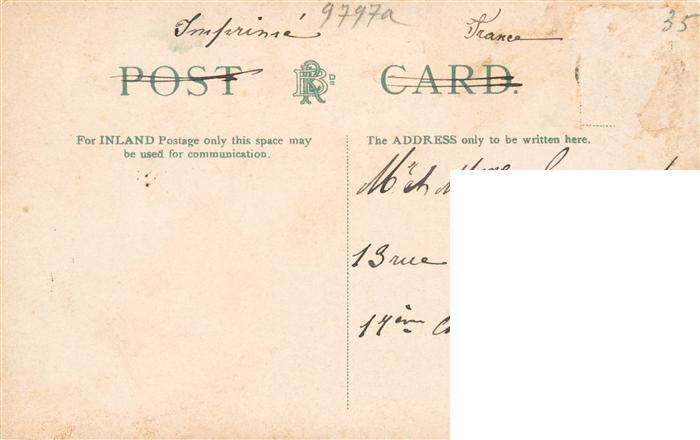 9797a 35
Imprimé France
POST CARD.
For INLAND Postage only this space may
be used for communication.
The ADDRESS only to be written here.
Mr et Mme
13 rue
17ème